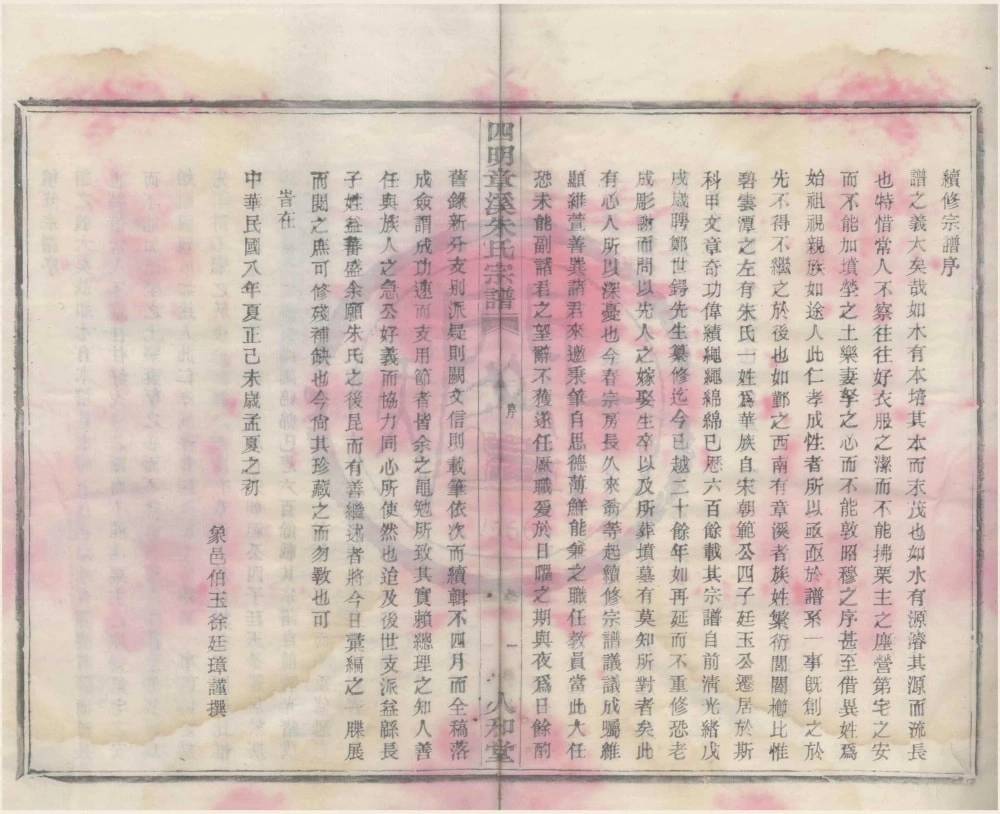 續修宗譜序
譜之義大矣哉如木有本培其本而末茂也如水有源濬其源而流長
也特惜常人不察往往好衣服之潔而不能拂栗主之塵營第宅之安
而不能加墳塋之土樂妻孥之心而不能敦昭穆之序甚至借異姓爲
始祖視親族如途人此仁孝成性者所以亟亟於譜系一事旣創之於
先不得不繼之於後也如鄞之西南有章溪者族姓繁衍閭閻櫛比惟
碧雲潭之左有朱氏一姓爲華族自宋朝範公四子廷玉公遷居於斯
科甲文章奇功偉績繩繩綿綿已歷六百餘載其宗譜自前清光緒戊
戌歲聘鄭世鍔先生纂修迄今已越二十餘年如再延而不重修恐老
成彫謝而問以先人之嫁娶生卒以及所葬墳墓有莫知所對者矣此
有心人所以深憂也今春宗房長久來翕等起續修宗譜議議成囑維
顯維萱善巽諸君來邀秉筆自思德薄鮮能兼之職任敎員當此大任
恐未能副諸君之望辭不獲遂任厥職爰於日曜之期與夜爲日餘酌
舊錄新分支別派疑則闕文信則載筆依次而續輯不四月而全稿落
成僉謂成功速而支用節者皆余之黽勉所致其實賴總理之知人善
任與族人之急公好義而協力同心所使然也迨及後世支派益緜長
子姓益蕃盛余願朱氏之後昆而有善繼述者將今日彙編之 牒展
而閱之庶可修殘補缺也今尙其珍藏之而勿斁也可
旹在
中華民國八年夏正己未歲孟夏之初
象邑伯玉徐廷璋謹撰
四明章溪朱氏宗譜
序
卷一
八和堂